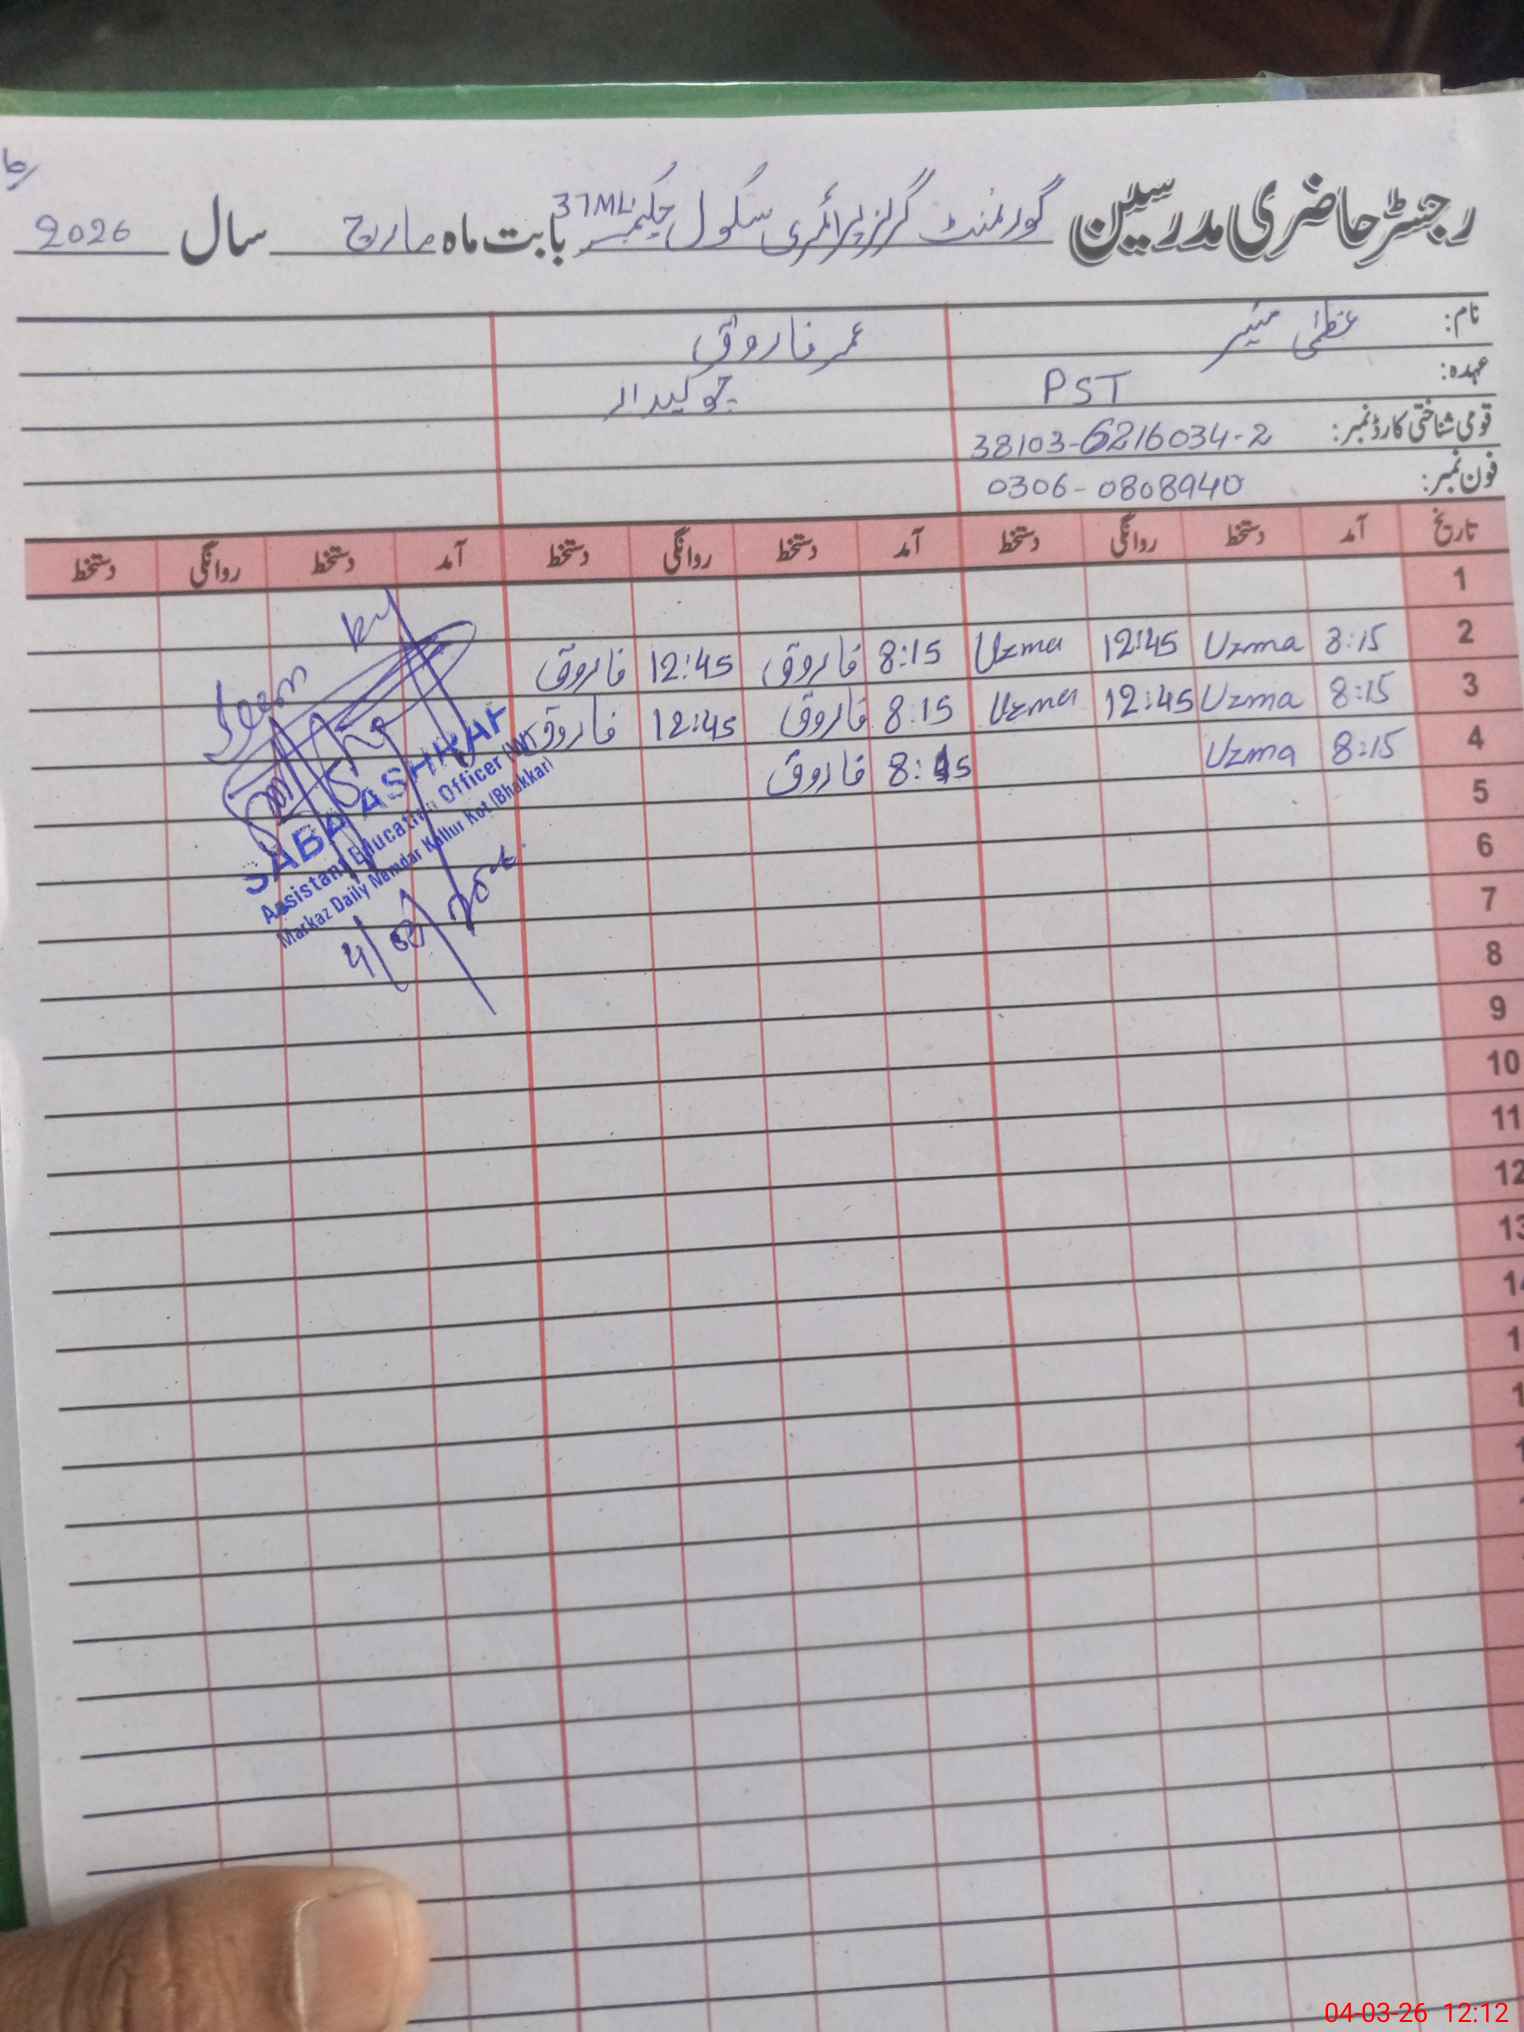 رجسٹر حاضری مدرسین گورنمنٹ گرلز پرائمری سکول 37ML بابت ماہ مارچ سال 2026
نام: عظمیٰ عمر فاروق
عہدہ: PST چوکیدار
قومی شناختی کارڈ نمبر: 38103-6216034-2
فون نمبر: 0306-0808940
تاریخ آمد دستخط روانگی دستخط آمد دستخط روانگی دستخط آمد دستخط روانگی دستخط
1
2 8:15 Uzma 12:45 Uzma 8:15 فاروق 12:45 فاروق
3 8:15 Uzma 12:45 Uzma 8:15 فاروق 12:45 فاروق
4 8:15 Uzma 8:15 فاروق
5
6
7
8
9
10
11
12
13
Seen by
SABA ASHRAF
Assistant Education Officer (W)
Markaz Daily Namdar Kallur Kot (Bhakkar)
04-03-26 12:12